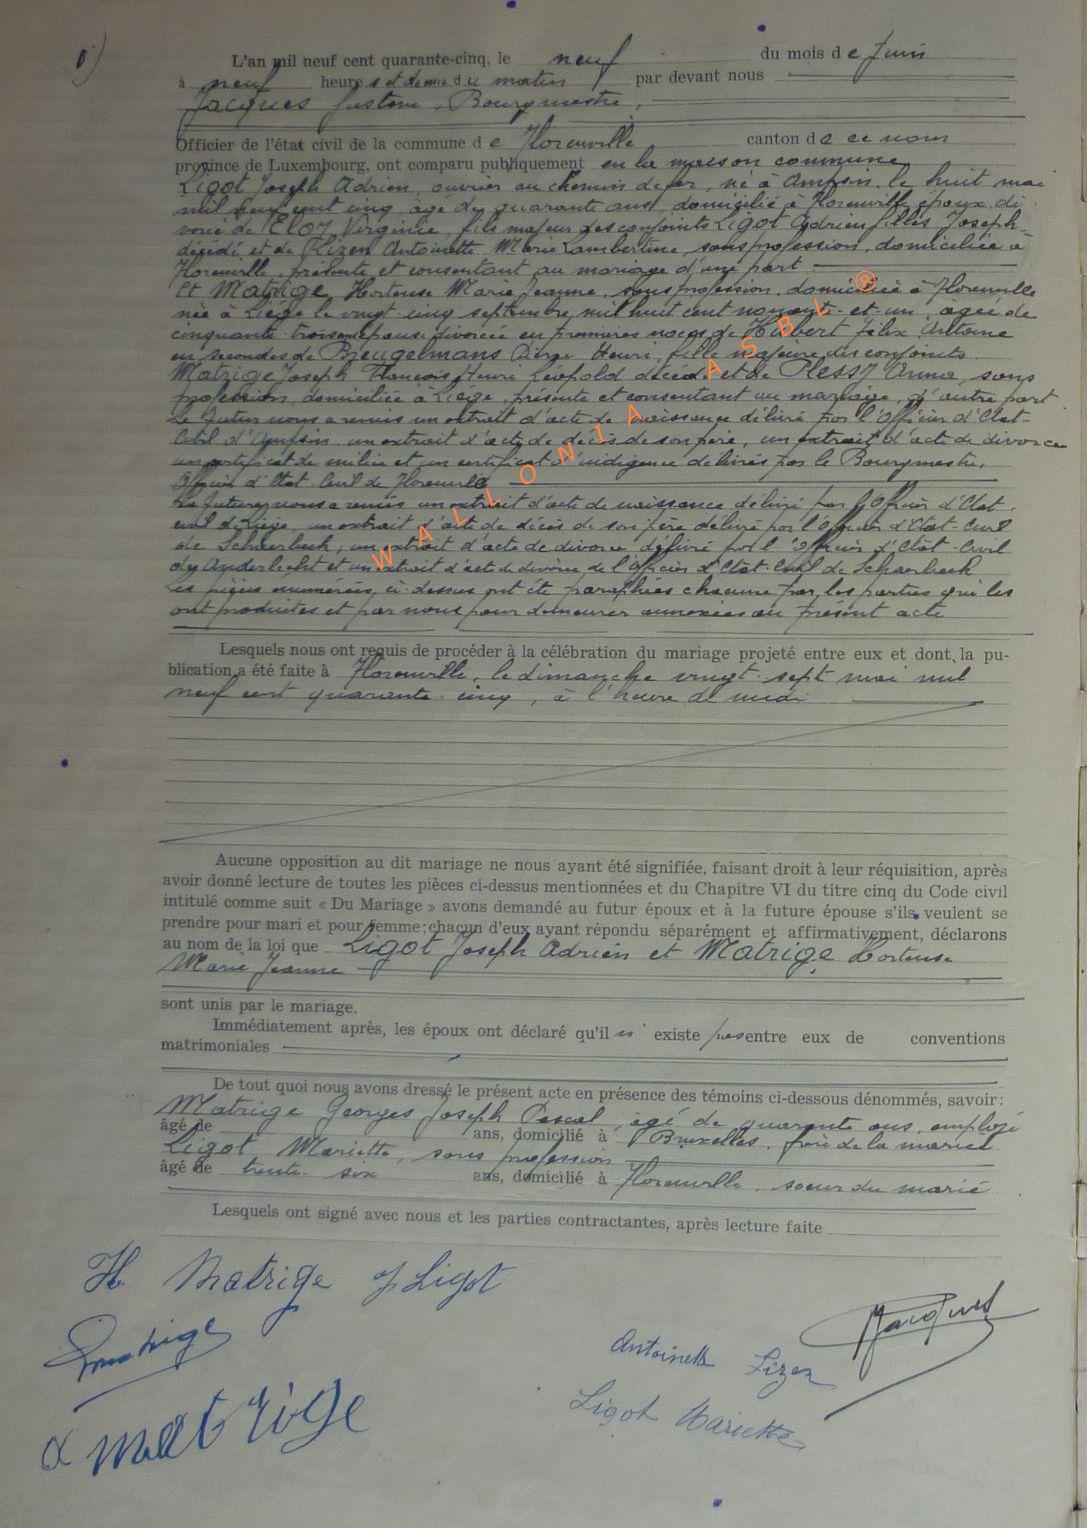 6)
L'an mil neuf cent quarante-cinq, le neuf du mois de Juin
à neuf heures et demie du matin par devant nous
Jacques Gustave, Bourgmestre,
Officier de l'état civil de la commune de Florenville canton de ce nom
province de Luxembourg, ont comparu publiquement en la maison commune
Ligot Joseph Adrien, ouvrier au chemin de fer, né à Ampsin, le huit mai
mil neuf cent cinq, âgé de quarante ans, domicilié à Florenville époux di
vorcé de Eloy Virginie, fils majeur des conjoints Ligot Adrien Joseph
décédé et de Lizen Antoinette Marie Lambertine, sans profession, domiciliée à
Florenville, présente et consentant au mariage d'une part
Et Matrige Hortense Marie Jeanne, sans profession, domiciliée à Florenville
née à Liège le vingt-cinq septembre mil huit cent nonante-et-un, âgée de
cinquante-trois ans épouse divorcée en premières noces de Hubert Félix Antoine
en secondes de Henri, fille majeure des conjoints
Matrige Joseph François Henri Léopold décédé et de Plessy Anna, sans
profession, domiciliée à Liège, présente et consentant au mariage, d'autre part
Le futur nous a remis un extrait d'acte de naissance délivré par l'Officier d'Etat-
Civil d'Ampsin, un extrait d'acte de décès de son père, un extrait d'acte de divorce
un certificat de milice et un certificat d'indigence délivrés par le Bourgmestre,
Officier d'Etat-Civil de Florenville
La future nous a remis un extrait d'acte de naissance délivré par l'Officier d'Etat-
civil de Liège, un extrait d'acte de décès de son père délivré par l'Officier d'Etat-Civil
de Schaerbeek, un extrait d'acte de divorce délivré par l'Officier d'Etat-Civil
d'Anderlecht et un extrait d'acte de divorce de l'Officier d'Etat-Civil de Schaerbeek
Les pièces énumérées ci-dessus ont été paraphées chacune par les parties qui les
ont produites et par nous pour demeurer annexées au présent acte
WALLONIA ASBL ®
Lesquels nous ont requis de procéder à la célébration du mariage projeté entre eux et dont la pu-
blication a été faite à Florenville, le dimanche vingt-sept mai mil
neuf cent quarante-cinq, à l'heure de midi
Aucune opposition au dit mariage ne nous ayant été signifiée, faisant droit à leur réquisition, après
avoir donné lecture de toutes les pièces ci-dessus mentionnées et du Chapitre VI du titre cinq du Code civil
intitulé comme suit « Du Mariage » avons demandé au futur époux et à la future épouse s'ils veulent se
prendre pour mari et pour femme; chacun d'eux ayant répondu séparément et affirmativement, déclarons
au nom de la loi que Ligot Joseph Adrien et Matrige Hortense
Marie Jeanne
sont unis par le mariage.
Immédiatement après, les époux ont déclaré qu'il n'existe pas entre eux de conventions
matrimoniales
De tout quoi nous avons dressé le présent acte en présence des témoins ci-dessous dénommés, savoir:
Matrige Georges Joseph Pascal, âgé de quarante ans, employé
âgé de ans, domicilié à Bruxelles, frère de la mariée
Ligot Mariette, sans profession
âgé de trente-six ans, domicilié à Florenville, soeur du marié
Lesquels ont signé avec nous et les parties contractantes, après lecture faite
H. Matrige J Ligot
Matrige
Jacques
Antoinette Lizen
Ligot Mariette
Matrige